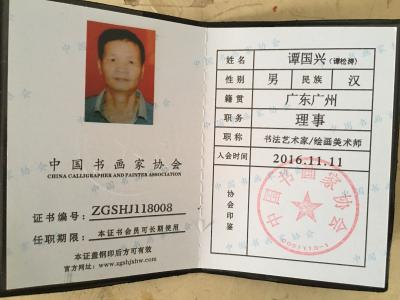 中国书画家协会
CHINA CALLIGRAPHER AND PAINTER ASSOCIATION
证书编号：ZGSHJ118008
任职期限：本证书会员可长期使用
本证盖钢印后方可有效
官方网址：www.zgshjxhw.com
姓名 谭国兴（谭松涛）
性别 男 民族 汉
籍贯 广东广州
职务 理事
职称 书法艺术家/绘画美术师
入会时间 2016.11.11
协会印鉴
中国书画家协会